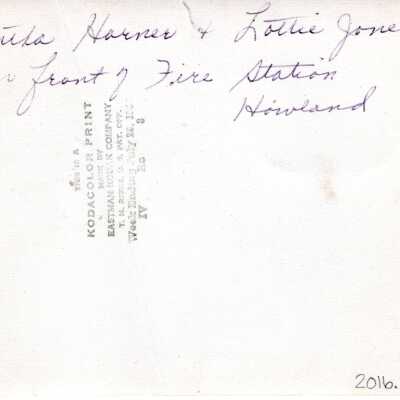 Horner + Lottie Jone
front of Fire Station
Howland
THIS IS A
KODACOLOR PRINT
MADE BY
EASTMAN KODAK COMPANY
T. M. REGIS. U. S. PAT. OFF.
Week Ending July
IV Ro 8
2016.